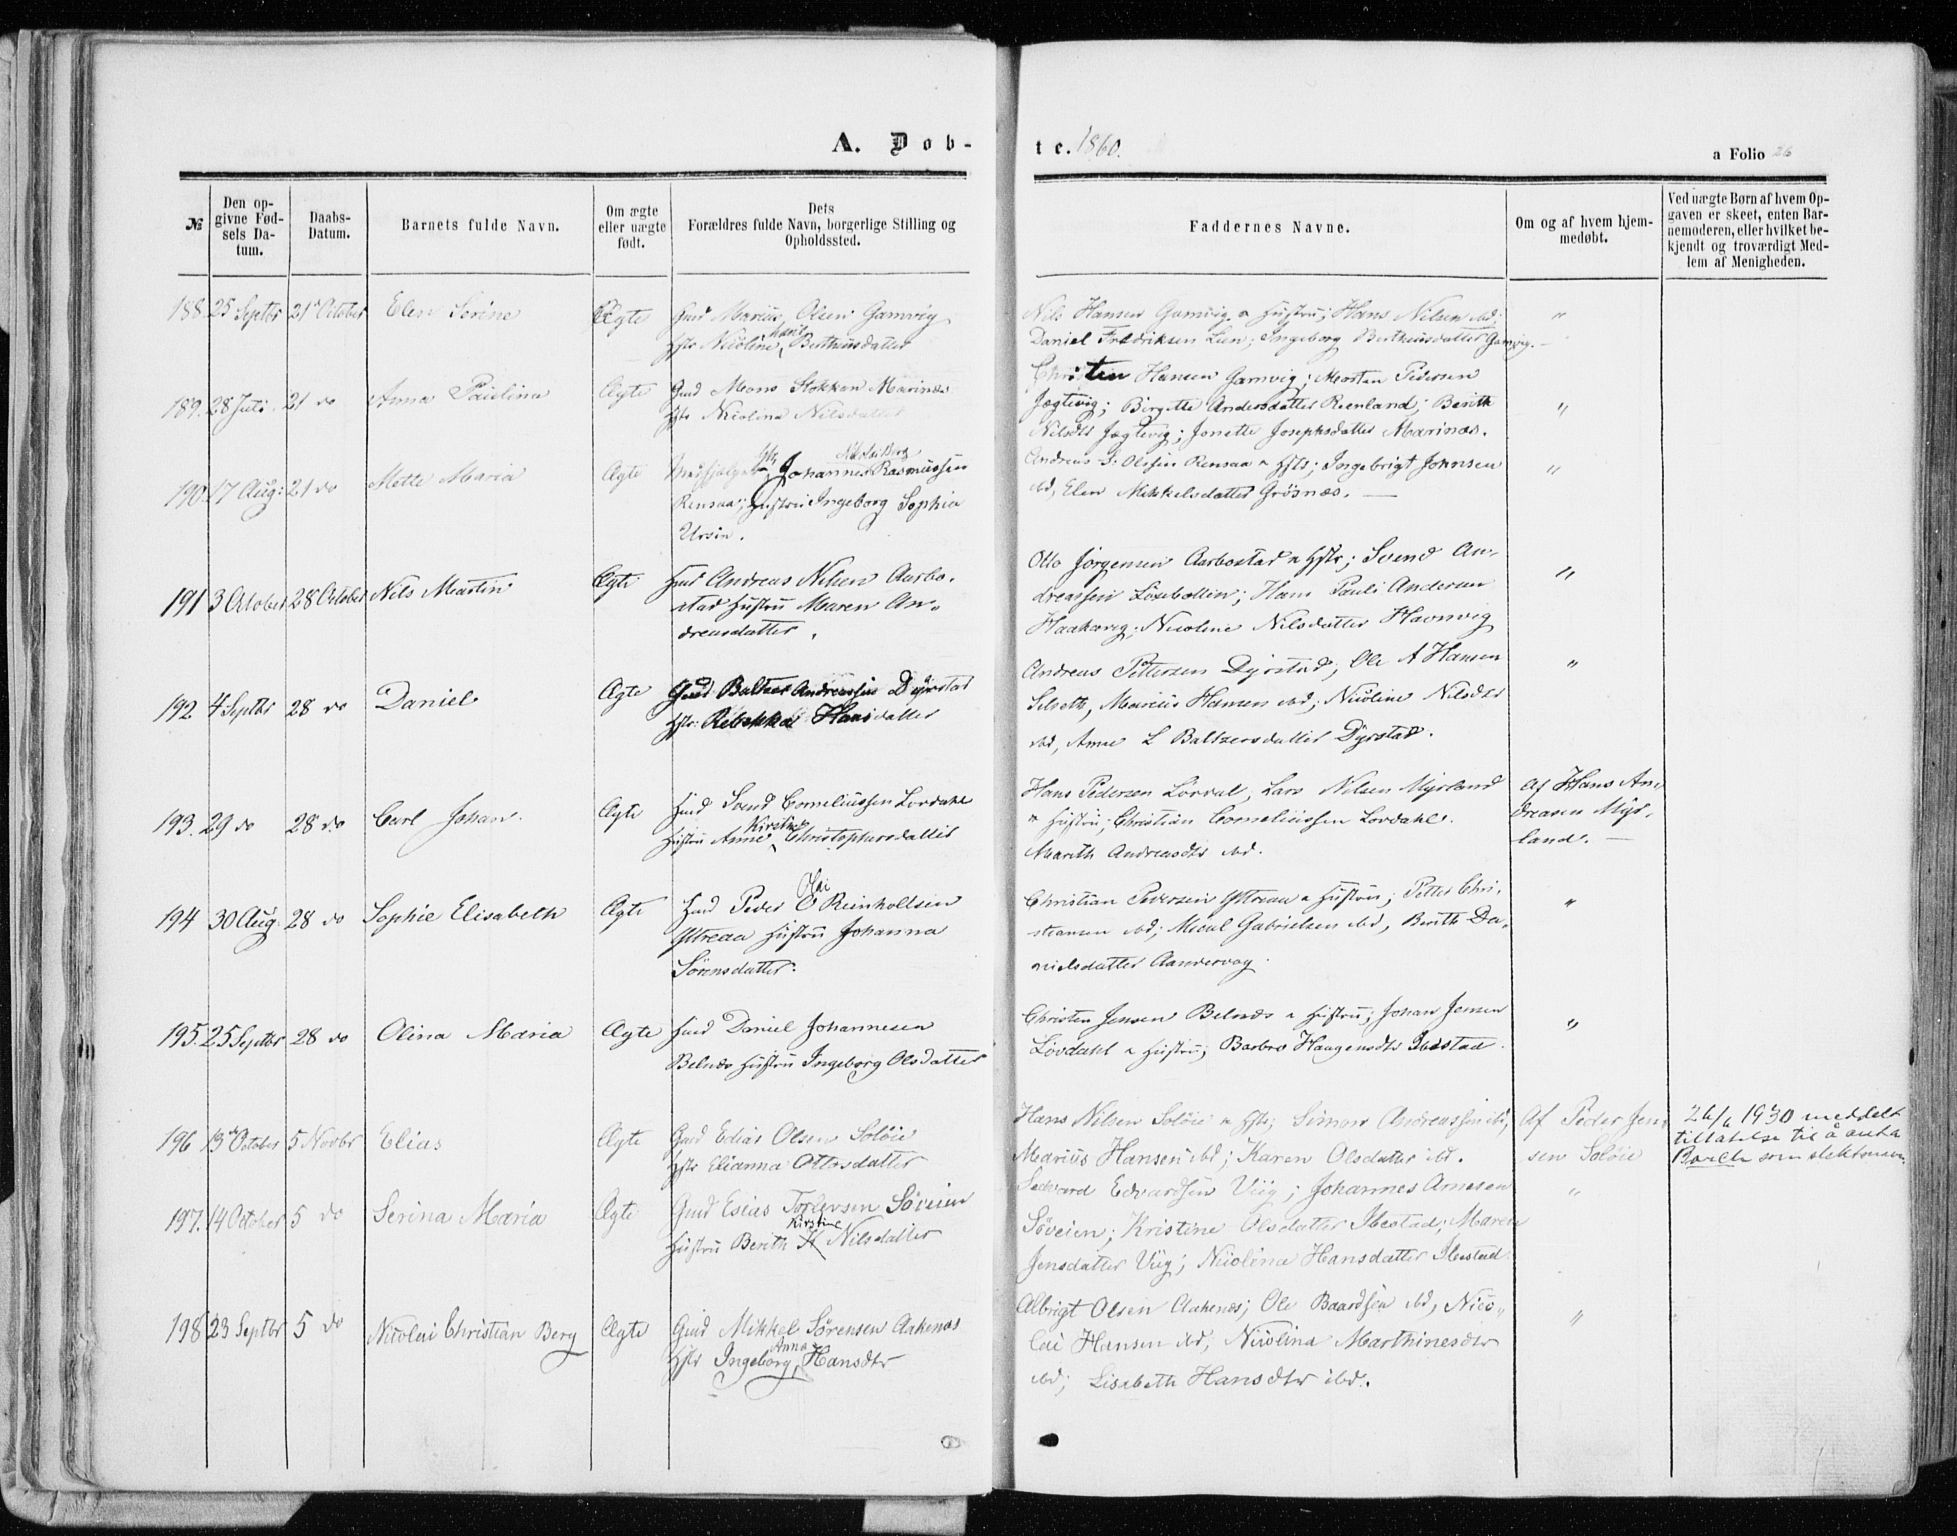 A. Døb-
te. 1860.
a Folio 26
№
Den opgivne Fødsels Datum.
Daabs-Datum.
Barnets fulde Navn.
Om ægte eller uægte født.
Dets Forældres fulde Navn, borgerlige Stilling og Opholdssted.
Faddernes Navne.
Om og af hvem hjemmedøbt.
Ved uægte Børn af hvem Opgaven er skeet, enten Barnemoderen, eller hvilket bekjendt og troværdigt Medlem af Menigheden.
188. 25 Septbr 21 October Elen Serine Ægte Gmd Marius Olsen Gamvig
Hstr Nicoline Marit Berthusdatter
Nils Hansen Gamvig & Hustru; Hans Nilsen ibd;
Daniel Fredriksen Lien; Ingeborg Berthusdatter Gamvig. "
189. 28 Juli. 21 do Anna Paulina Ægte Gmd Mons Stokken Marinæs
Hstr Nicolina Nilsdatter
Christen Hansen Gamvig; Morten Pedersen
Jægtevig; Birgitte Andersdatter Reenland; Berith "
Nilsdtr Jægtevig; Jonette Josephsdatter Marinæs.
190. 17 Aug: 21 do Mette Maria Ægte Johannes Nicolai Berg Rasmussen
Rensaa; Hustru Ingeborg Sophia
Ursin.
Andreas J. Olssen Rensaa & Hstr; Ingebrigt Johnsen "
ibd, Elen Mikkelsdatter Grøsnæs. —
191 3 October 28 October Nils Martin Ægte Hmd Andreas Nilsen Aarbo-
stad Hustru Maren An-
dreasdatter.
Otto Jørgensen Aarbostad & Hstr; Svend An-
dreassen Løsebollen; Hans Pauli Andersen "
Haakavig; Nicoline Nilsdatter Havnvig
192 4 Septbr 28 do Daniel Ægte Gmd Baltzer Andreassen Dyrstad
Hstr: Rebekka Hansdatter
Andreas Pettersen Dyrstad; Ole A Hansen "
Selseth, Marius Hansen ibd; Nicoline Nilsdtr
ibd, Anne L Baltzersdatter Dyrstad.
193. 29 do 28 do Carl Johan. Ægte Hmd Svend Corneliussen Lovdahl
Hustru Anne Kirstine Christophersdatter
Hans Pedersen Lovdal, Lars Nilsen Myrland
& Hustru; Christian Corneliussen Lovdahl.
Marith Andreasdtr ibd.
Af Hans An-
dreasen Myr-
land. —
194 30 Aug. 28 do Sophie Elisabeth Ægte Hmd Peder Olai Reinholtsen
Ytreaa Hustru Johanna
Sørensdatter.
Christian Pedersen Ytreaa & Hustru; Petter Chri-
stiansen ibd; Micul Gabrielsen ibd, Berith Da- "
nielsdatter Aandervag.
195. 25 Septbr 28 do Olina Maria Ægte Hmd Daniel Johannesen
Belnæs Hustru Ingeborg Olsdatter
Christen Jensen Belnæs & Hustru; Johan Jensen
Løvdahl & Hustru; Barbro Haagensdtr Ibestad. "
196 13 October 5 Novbr Elias Ægte Gmd Edias Olsen Soløie
Hstr Elianna Ottosdatter
Hans Nilsen Soløie & Hstr; Simon Andreassen ibd;
Marius Hansen ibd; Karen Olsdatter ibd.
Af Peder Jen-
sen Soløie
26/6 1930 meddelt
tillatelse til å anta
som slektsnavn.
197. 14 October 5 do Serina Maria Ægte Gmd Esias Torlevsen Søveien
Hustru Berith Kirstine Nilsdatter
Sedvard Edvardsen Viig; Johannes Arnesen "
Søveien; Kristine Olsdatter Ibestad; Maren
Jensdatter Viig; Nicolina Hansdatter Ibestad.
198 23 Septbr 5 do Nicolai Christian Berg Ægte Gmd Mikkel Sørensen Aakenæs
Hstr Ingeborg Anna Hansdtr
Albrigt Olsen Aakenæs; Ole Baardsen ibd, Nico- "
lai Hansen ibd, Nicolina Marthinesdtr
ibd; Lisabeth Hansdtr ibd.